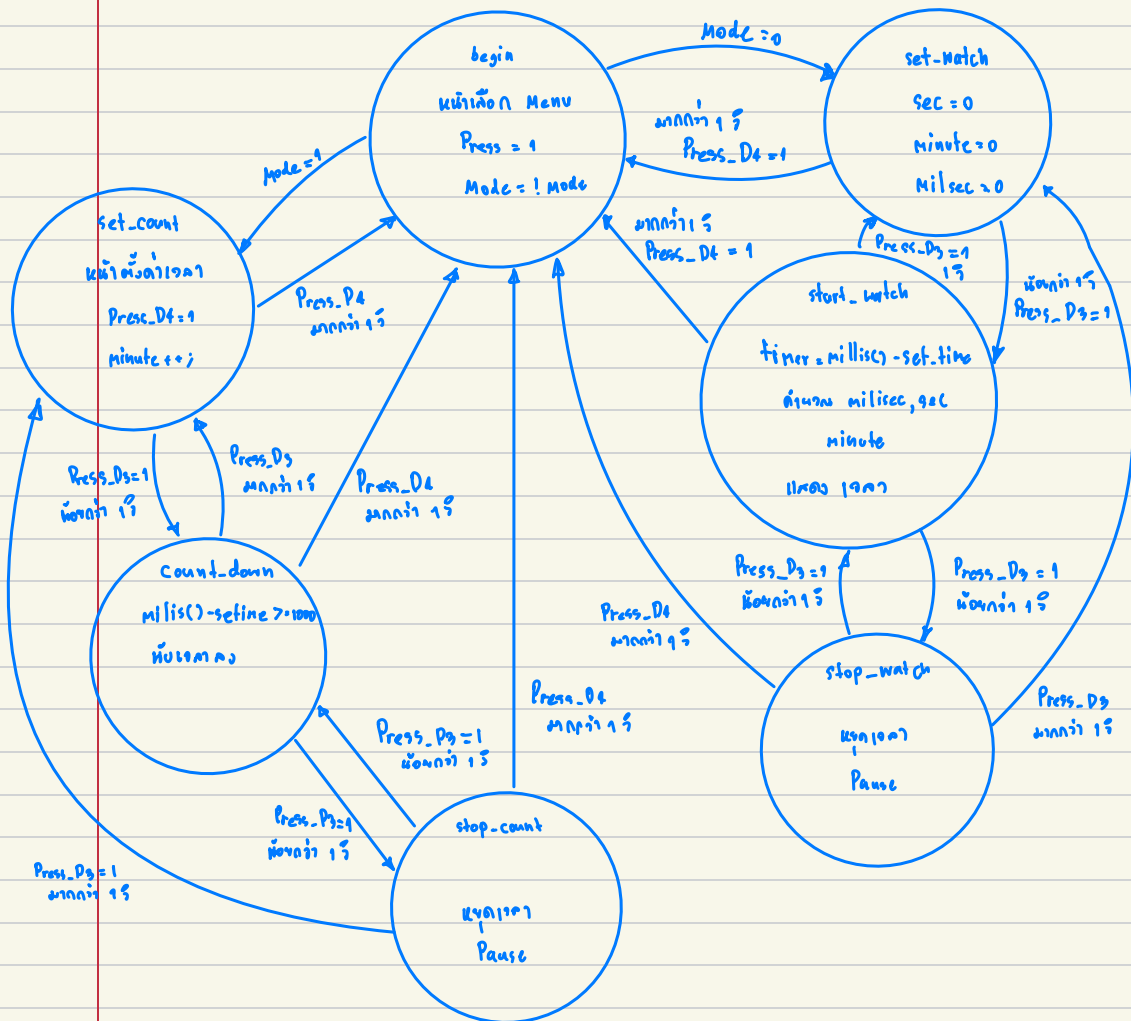 begin
หน้าเลือก Menu
Press = 1
Mode = ! Mode
Mode = 0
set-watch
sec = 0
minute = 0
Milsec = 0
มากกว่า 1 วิ
Press_D4 = 1
Mode = 1
set_count
หน้าตั้งค่าเวลา
Press_D4 = 1
minute ++;
Press_D4
มากกว่า 1 วิ
มากกว่า 1 วิ
Press_D4 = 1
Press_D3 = 1
1 วิ
น้อยกว่า 1 วิ
Press_D3 = 1
start_watch
timer = millis() - set.time
คำนวณ milisec, sec
minute
แสดง เวลา
Press_D3 = 1
น้อยกว่า 1 วิ
Press_D3
มากกว่า 1 วิ
Press_D4
มากกว่า 1 วิ
count_down
milis() - setime >= 1000
นับเวลาลง
Press_D3 = 1
น้อยกว่า 1 วิ
Press_D3 = 1
น้อยกว่า 1 วิ
Press_D4
มากกว่า 1 วิ
stop_watch
หยุดเวลา
Pause
Press_D3
มากกว่า 1 วิ
Press_D4
มากกว่า 1 วิ
Press_D3 = 1
น้อยกว่า 1 วิ
Press_D3 = 1
น้อยกว่า 1 วิ
stop_count
หยุดเวลา
Pause
Press_D3 = 1
มากกว่า 1 วิ